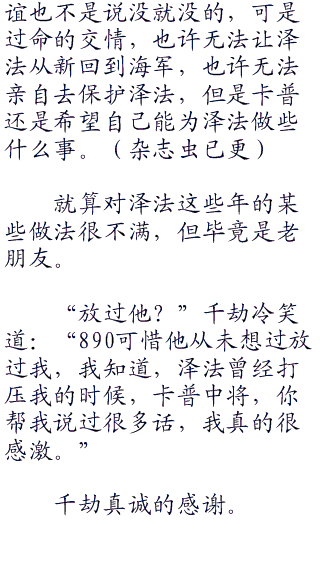 谊也不是说没就没的，可是
过命的交情，也许无法让泽
法从新回到海军，也许无法
亲自去保护泽法，但是卡普
还是希望自己能为泽法做些
什么事。（杂志虫已更）
就算对泽法这些年的某
些做法很不满，但毕竟是老
朋友。
“放过他？”千劫冷笑
道：“890可惜他从未想过放
过我，我知道，泽法曾经打
压我的时候，卡普中将，你
帮我说过很多话，我真的很
感激。”
千劫真诚的感谢。